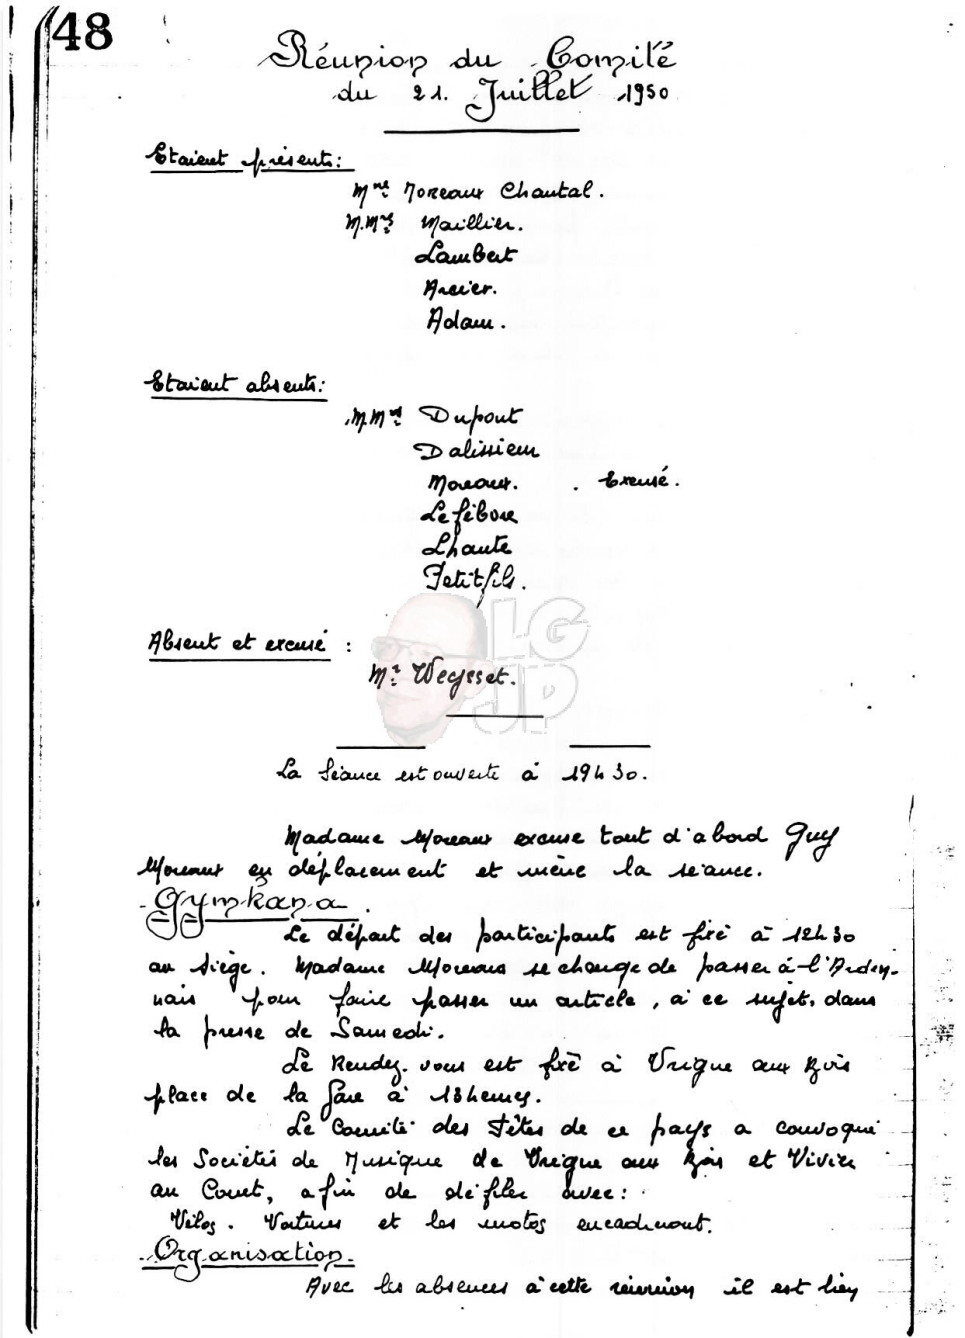 48
Réunion du Comité
du 21. Juillet 1950
Etaient présents:
Mme Moreaux Chantal.
M.Mrs Maillier.
Lambert
Arcier.
Adam.
Etaient absents:
M.Mrs Dupont
Dalissieu
Moreaux. . Excusé.
Lefèbvre
Lhaute
Petitfils.
Absent et excusé :
LG
JP
Mr. Weysset.
La Séance est ouverte à 19h30.
Madame Moreaux excuse tout d'abord Guy
Moreaux en déplacement et mène la séance.
- Gymkana.
Le départ des participants est fixé à 12h30
au siège. Madame Moreaux se change de passer à l'Arden-
nais pour faire passer un article, à ce sujet, dans
la presse de Samedi.
Le Rendez-vous est fixé à Vrigne aux Bois
place de la Gare à 13heures.
Le Comité des Fêtes de ce pays a convoqué
les Sociétés de Musique de Vrigne aux Bois et Vivier
au Court, afin de défiler avec:
Vélos. Voitures et les motos encadreront.
- Organisation.
Avec les absences à cette réunion il est bien